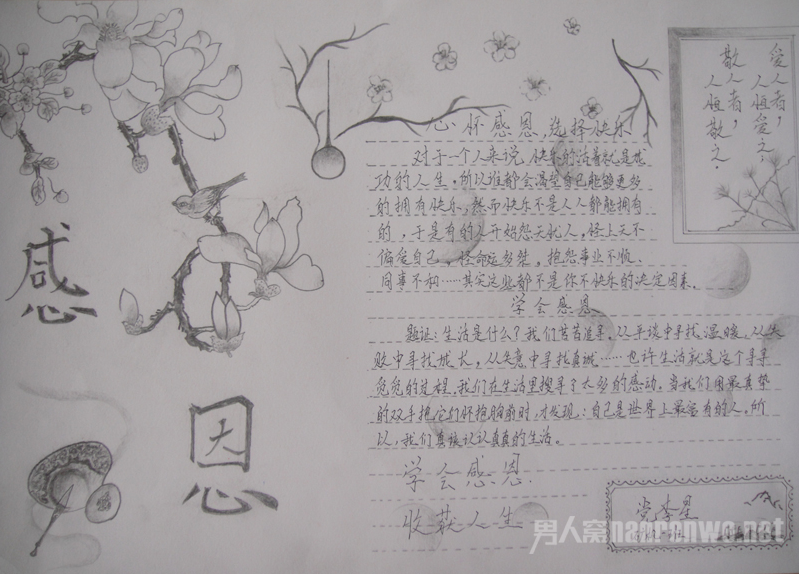 感
恩
心怀感恩,选择快乐
对于一个人来说,快乐的活着就是成
功的人生。所以谁都会渴望自己能够更多
的拥有快乐,然而快乐不是人人都能拥有
的,于是有的人开始怨天尤人,怪上天不
偏爱自己,怪命运多桀,抱怨事业不顺、
同事不和……其实这些都不是你不快乐的决定因素。
学会感恩
题记:生活是什么?我们苦苦追寻,从平淡中寻找温暖,从失
败中寻找成长,从失意中寻找真诚……也许生活就是这个寻寻
觅觅的过程,我们在生活里搜寻了太多的感动,当我们用最真挚
的双手把它们怀抱胸前时,才发现:自己是世界上最富有的人。所
以,我们真该认认真真的生活。
学会感恩
收获人生
爱人者,
人恒爱之,
敬人者,
人恒敬之。
星
班
男人窝nanrenwo.net